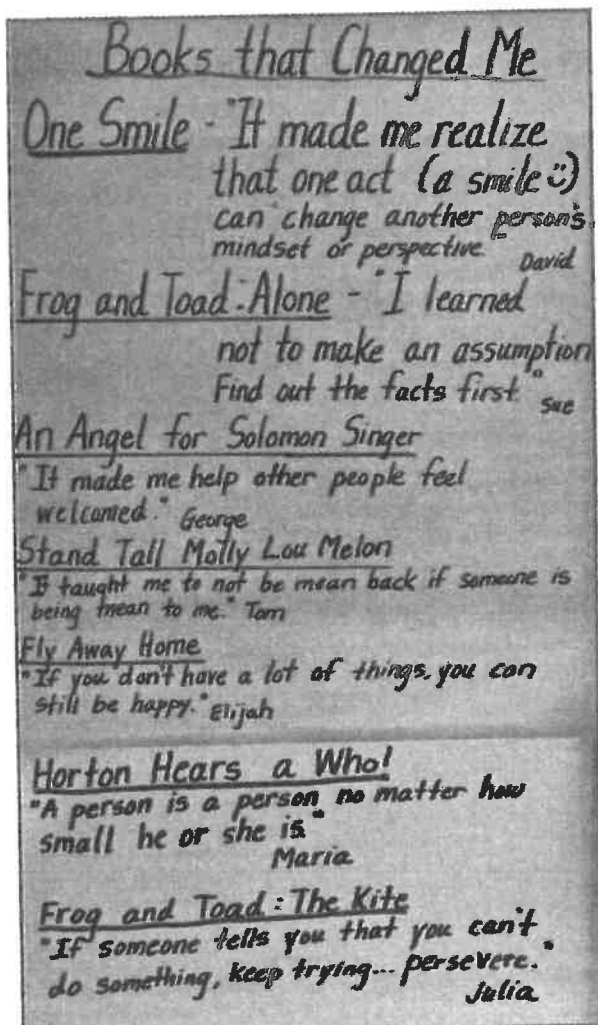 Books that Changed Me
One Smile - "It made me realize
that one act (a smile :)
can change another person's
mindset or perspective.
David
Frog and Toad: Alone - "I learned
not to make an assumption
Find out the facts first."
Sue
An Angel for Solomon Singer
"It made me help other people feel
welcomed." George
Stand Tall Molly Lou Melon
"It taught me to not be mean back if someone is
being mean to me." Tom
Fly Away Home
"If you don't have a lot of things, you can
still be happy." Elijah
Horton Hears a Who!
"A person is a person no matter how
small he or she is."
Maria
Frog and Toad: The Kite
"If someone tells you that you can't
do something, keep trying... persevere."
Julia